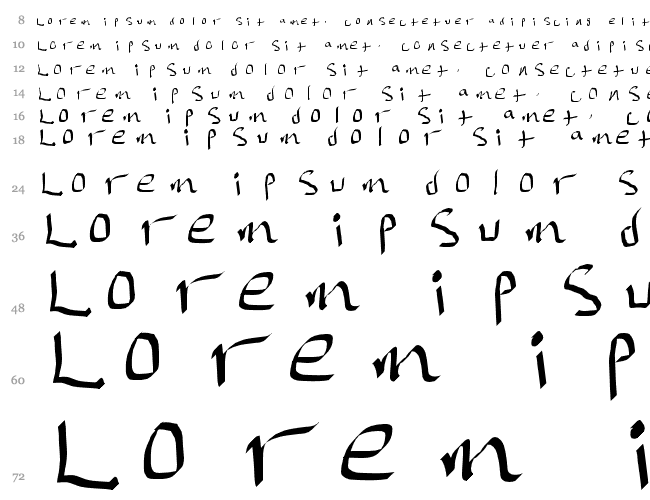 8 Lorem ipsum dolor sit amet, consectetuer adipiscing elit
10 Lorem ipsum dolor sit amet, consectetuer adipis
12 Lorem ipsum dolor sit amet, consectetue
14 Lorem ipsum dolor sit amet, cons
16 Lorem ipsum dolor sit amet, co
18 Lorem ipsum dolor sit amet
24 Lorem ipsum dolor s
36 Lorem ipsum d
48 Lorem ipsu
60 Lorem ip
72 Lorem i